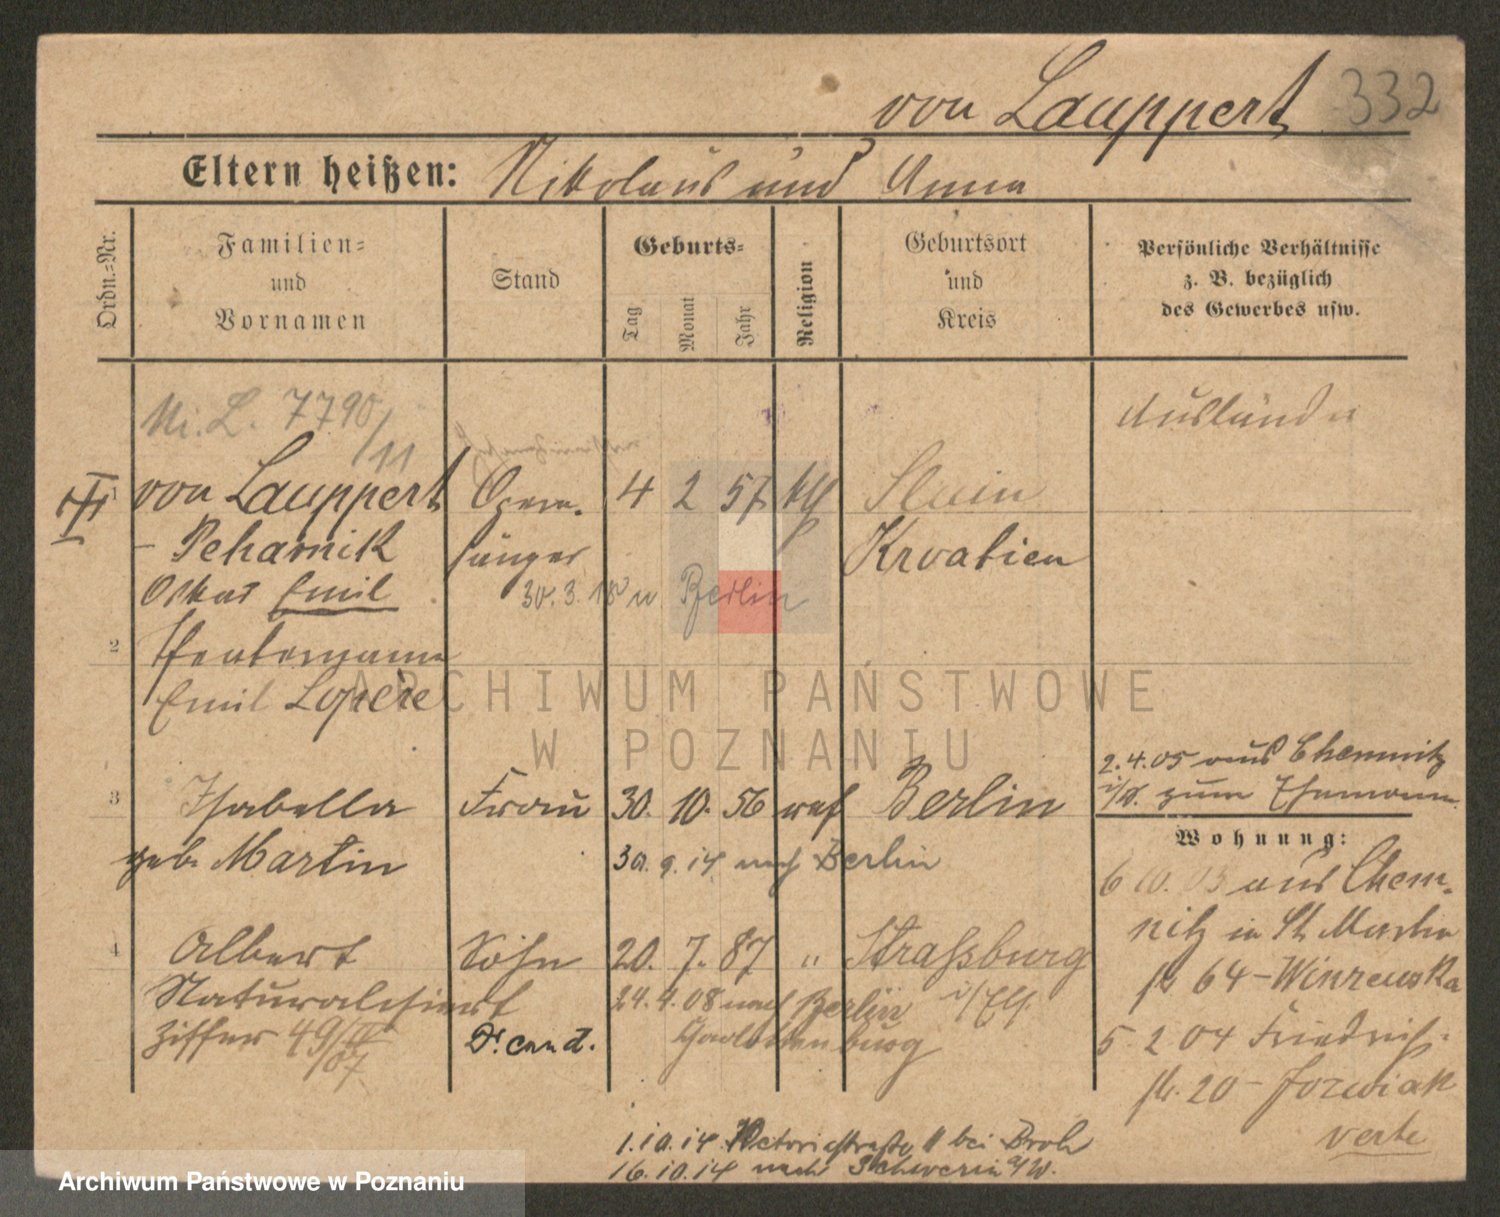 von Lauppert 332
Eltern heißen: Nikolaus und Anna
Ordn.-Nr.
Familien-
und
Vornamen
Stand
Geburts-
Tag
Monat
Jahr
Religion
Geburtsort
und
Kreis
Persönliche Verhältnisse
z. B. bezüglich
des Gewerbes usw.
Mi. L. 7790/11
Ausländer
1 von Lauppert Opern- 4 2 57 kth Sluin
- Peharnik sänger Kroatien
Oskar Emil 30. 3. 18 n Berlin
2 Theatername
Emil Lopère
3 Isabella Frau 30. 10. 56 ref Berlin
geb. Martin 30. 9. 14 nach Berlin
2. 4. 05 aus Chemnitz
zum Ehemann
Wohnung:
6 10. 03 aus Chem-
nitz in St Martin
str 64 - Winrewska
5. 2 04 Friedrich-
str. 20 - Jozwiak
verte
4 Albert Sohn 20. 7. 87 " Straßburg
Naturalisiert 24. 4. 08 nach Berlin i/Els.
Ziffer 49/IV 07 cand. Charlottenburg
1. 10. 14 Victoriastraße 11 bei Broh
16. 10. 14 nach Schwerin a/W.
ARCHIWUM PAŃSTWOWE
W POZNANIU
Archiwum Państwowe w Poznaniu